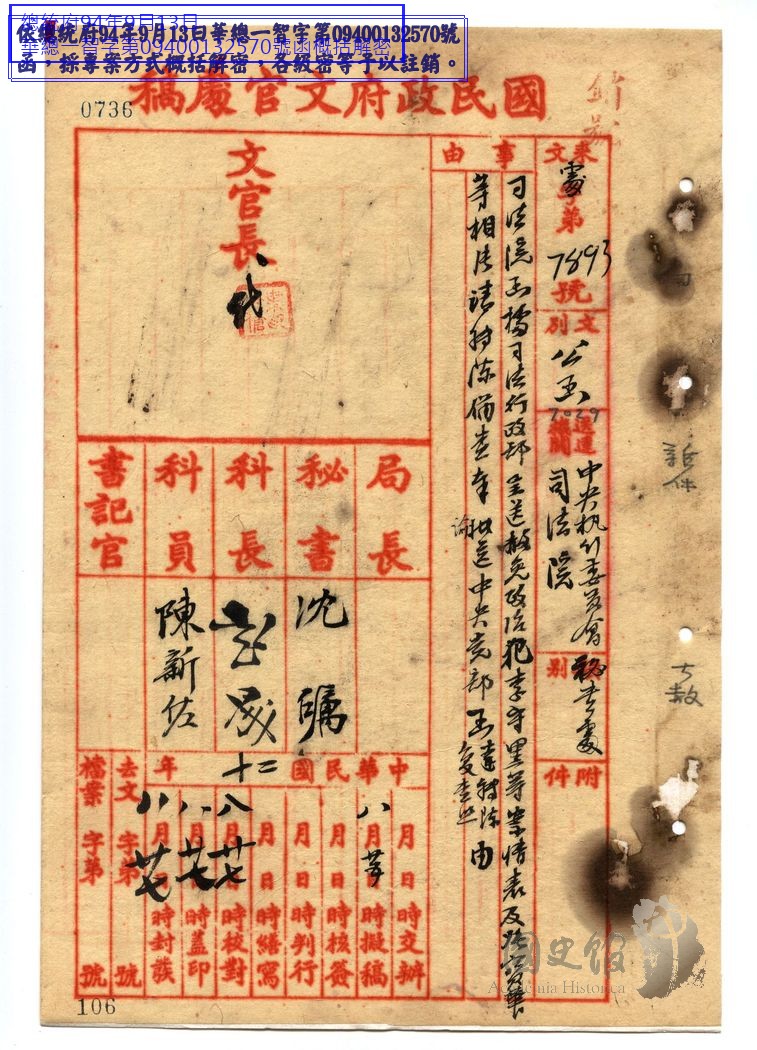 總統府94年9月13日
華總一智字第09400132570號函概括解密
依總統府94年9月13日華總一智字第09400132570號
函,採專案方式概括解密,各級密等予以註銷。
國民政府文官處稿
0736
來文
處字第7893號
文別
公函
7029
送達機關
中央執行委員會秘書處
司法院
別
附件
事由
司法院函據司法行政部呈送赦免政治犯李守黑等案情表及
等相片請轉陳備查奉
諭
批送中央党部函
查照由
文官長
代
局長
秘書
科長
科員
書記官
沈
陳新佐
中華民國十二年
八月
月日時交辦
月日時擬稿
月日時核簽
月日時判行
月日時繕寫
八月廿七日時校對
八月廿七日時蓋印
八月廿七日時封發
去文字第號
檔案字第號
國史館
Academia Historica
106